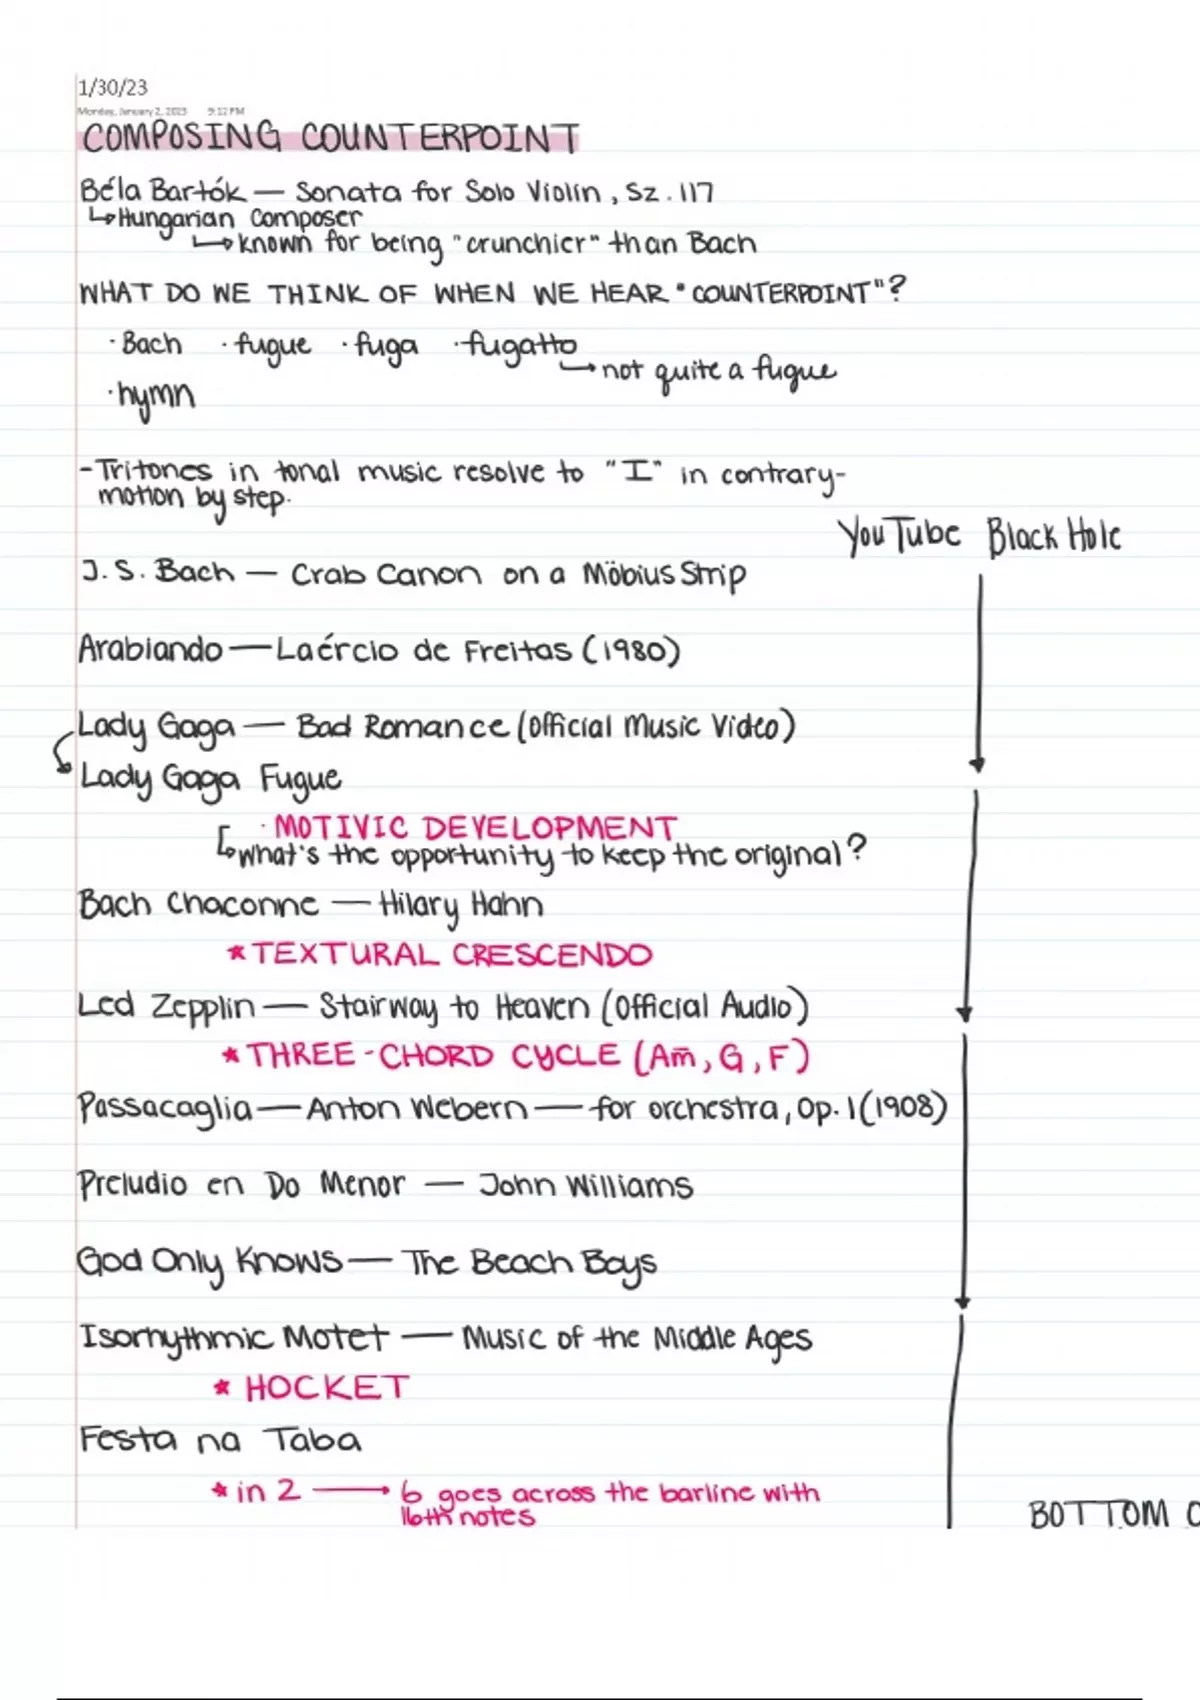 1/30/23
Monday, January 2, 2023 9:12 PM
COMPOSING COUNTERPOINT
Béla Bartók — Sonata for Solo Violin, Sz. 117
↳ Hungarian Composer
↳ known for being "crunchier" than Bach
WHAT DO WE THINK OF WHEN WE HEAR "COUNTERPOINT"?
· Bach · fugue · fuga · fugatto
→ not quite a fugue
· hymn
- Tritones in tonal music resolve to "I" in contrary-
motion by step.
YouTube Black Hole
J. S. Bach — Crab Canon on a Möbius Strip
Arabiando — Laércio de Freitas (1980)
Lady Gaga — Bad Romance (Official Music Video)
Lady Gaga Fugue
· MOTIVIC DEVELOPMENT
↳ What's the opportunity to keep the original?
Bach Chaconne — Hilary Hahn
* TEXTURAL CRESCENDO
Led Zepplin — Stairway to Heaven (Official Audio)
* THREE-CHORD CYCLE (Am, G, F)
Passacaglia — Anton Webern — for orchestra, Op. 1 (1908)
Preludio en Do Menor — John Williams
God Only Knows — The Beach Boys
Isorhythmic Motet — Music of the Middle Ages
* HOCKET
Festa na Taba
* in 2 → 6 goes across the barline with
16th notes
BOTTOM